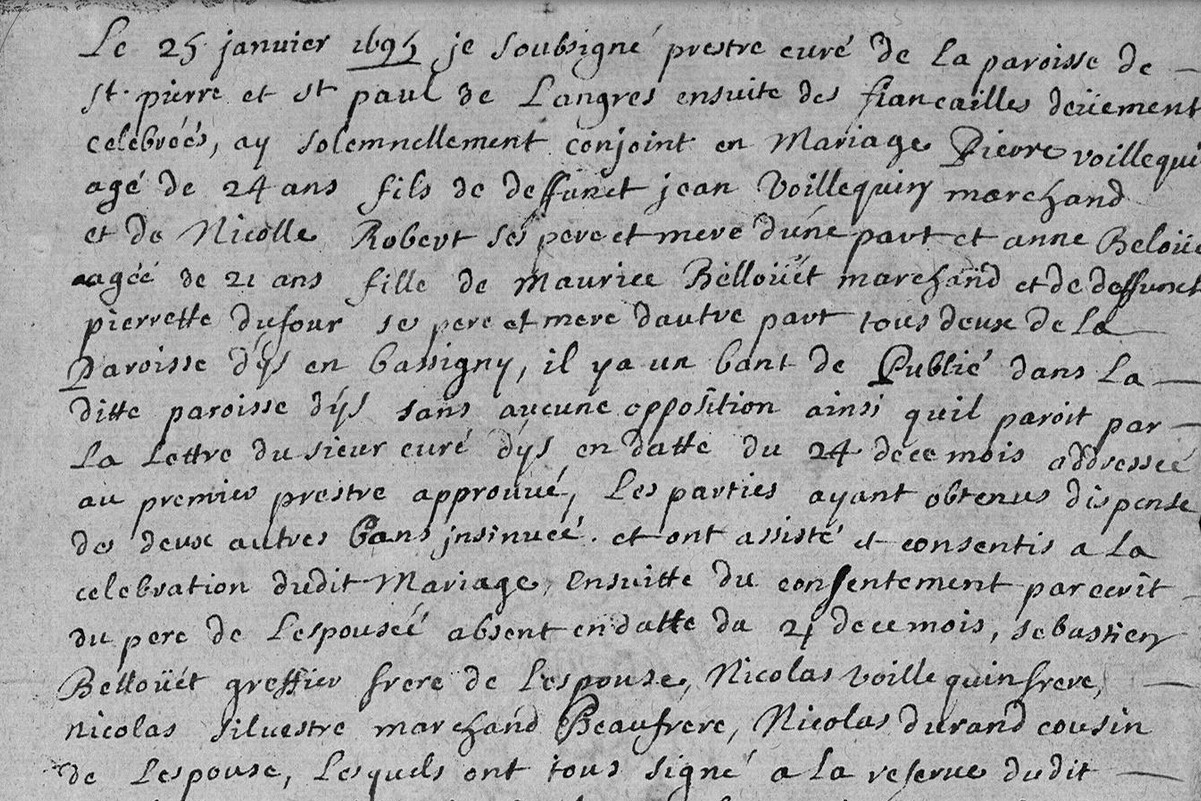 Le 25 janvier 1695 je soubsigné prestre curé de la paroisse de
st. pierre et st paul de Langres ensuite des fiancailles deüement
celebréés, ay solemnellement conjoint en Mariage Pierre voillequi
agé de 24 ans fils de deffunct jean Voillequin marchand
et de Nicolle Robert ses pere et mere dúne part et anne Beloüe
agéé de 21 ans fille de Maurice Bélloüét marchand et de deffunct
pierrette dufour ses pere et mere dautre part tous deux de la
Paroisse dÿs en bassigny, il ya un bant de Publié dans La
ditte paroisse dÿs sans aucune opposition ainsi quil paroit par
La Lettre du sieur curé dÿs en datte du 24 de ce mois addresseé
au premier prestre approuué, Les parties ayant obtenus dispense
des deux autres bans jnsinuéé. et ont assisté et consentis a la
celebration dudit Mariage, Ensuitte du consentement par ecrit
du pere de Lespouséé absent en datte du 21 de ce mois, sebastien
Belloüét greffier frere de Lespouse, Nicolas voille quin frere,
nicolas siluestre marchand Beaufrere, Nicolas durand cousin
de Lespouse, Lesquels ont tous signé a la reserue dudit